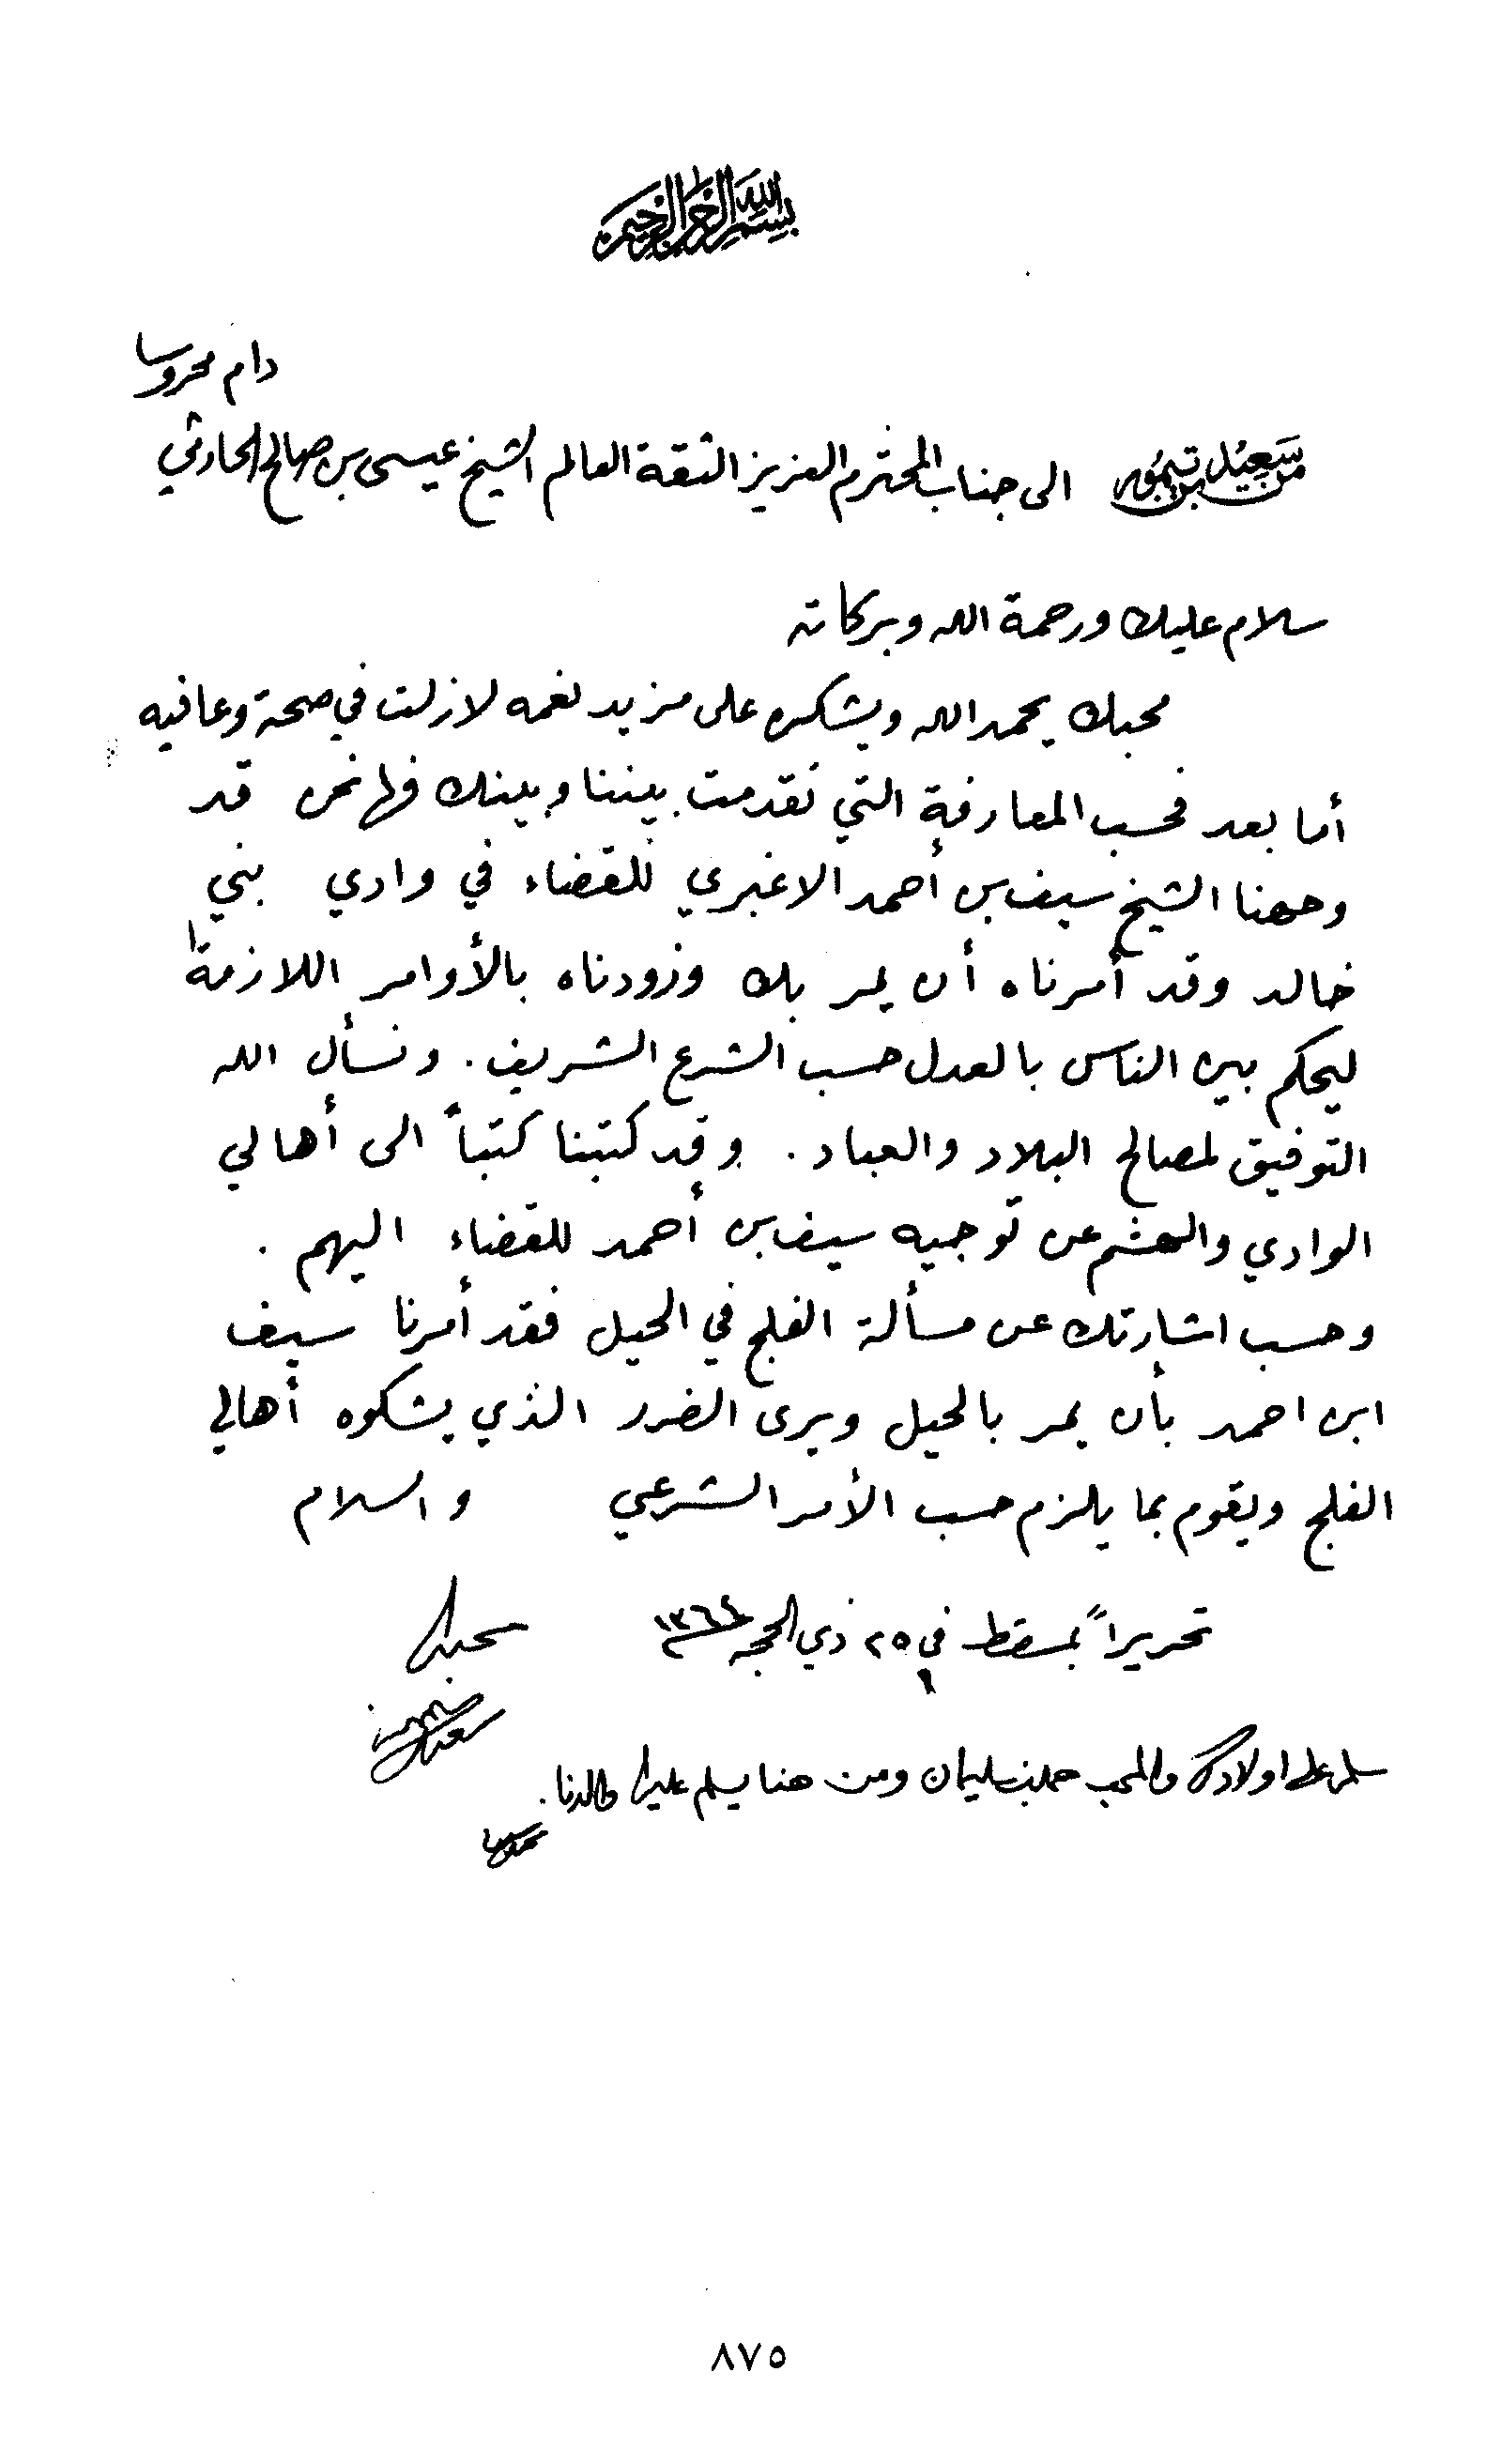 بسم الله الرحمن الرحيم
دام محروسا
من سعيد بن تيمور الى جناب المحترم العزيز الثقة العالم الشيخ عيسى بن صالح الحارثي
سلام عليك ورحمة الله وبركاته
محبك يحمد الله ويشكره على مزيد نعمه لازلت في صحة وعافيه
أما بعد فحسب المعارفة التي تقدمت بيننا وبينك فها نحن قد
وجهنا الشيخ سيف بن أحمد الاغبري للقضاء في وادي بني
خالد وقد أمرناه أن يمر بك وزودناه بالأوامر اللازمة
ليحكم بين الناس بالعدل حسب الشرع الشريف . ونسأل الله
التوفيق لمصالح البلاد والعباد . وقد كتبنا كتباً الى أهالي
الوادي والهشم عن توجيه سيف بن أحمد للقضاء اليهم .
وحسب اشارتك عن مسألة الفلج في الحيل فقد أمرنا سيف
ابن احمد بأن يمر بالحيل ويرى الضرر الذي يشكوه أهالي
الفلج ويقوم بما يلزم حسب الأمر الشرعي والسلام
تحريراً بمسقط في ٢٥ ذي الحجه ١٣٦٤
محبك
سعيد بن تيمور
سلم على اولادك والمحب حمد بن سليمان ومن هنا يسلم عليك والدنا .
٨٧٥